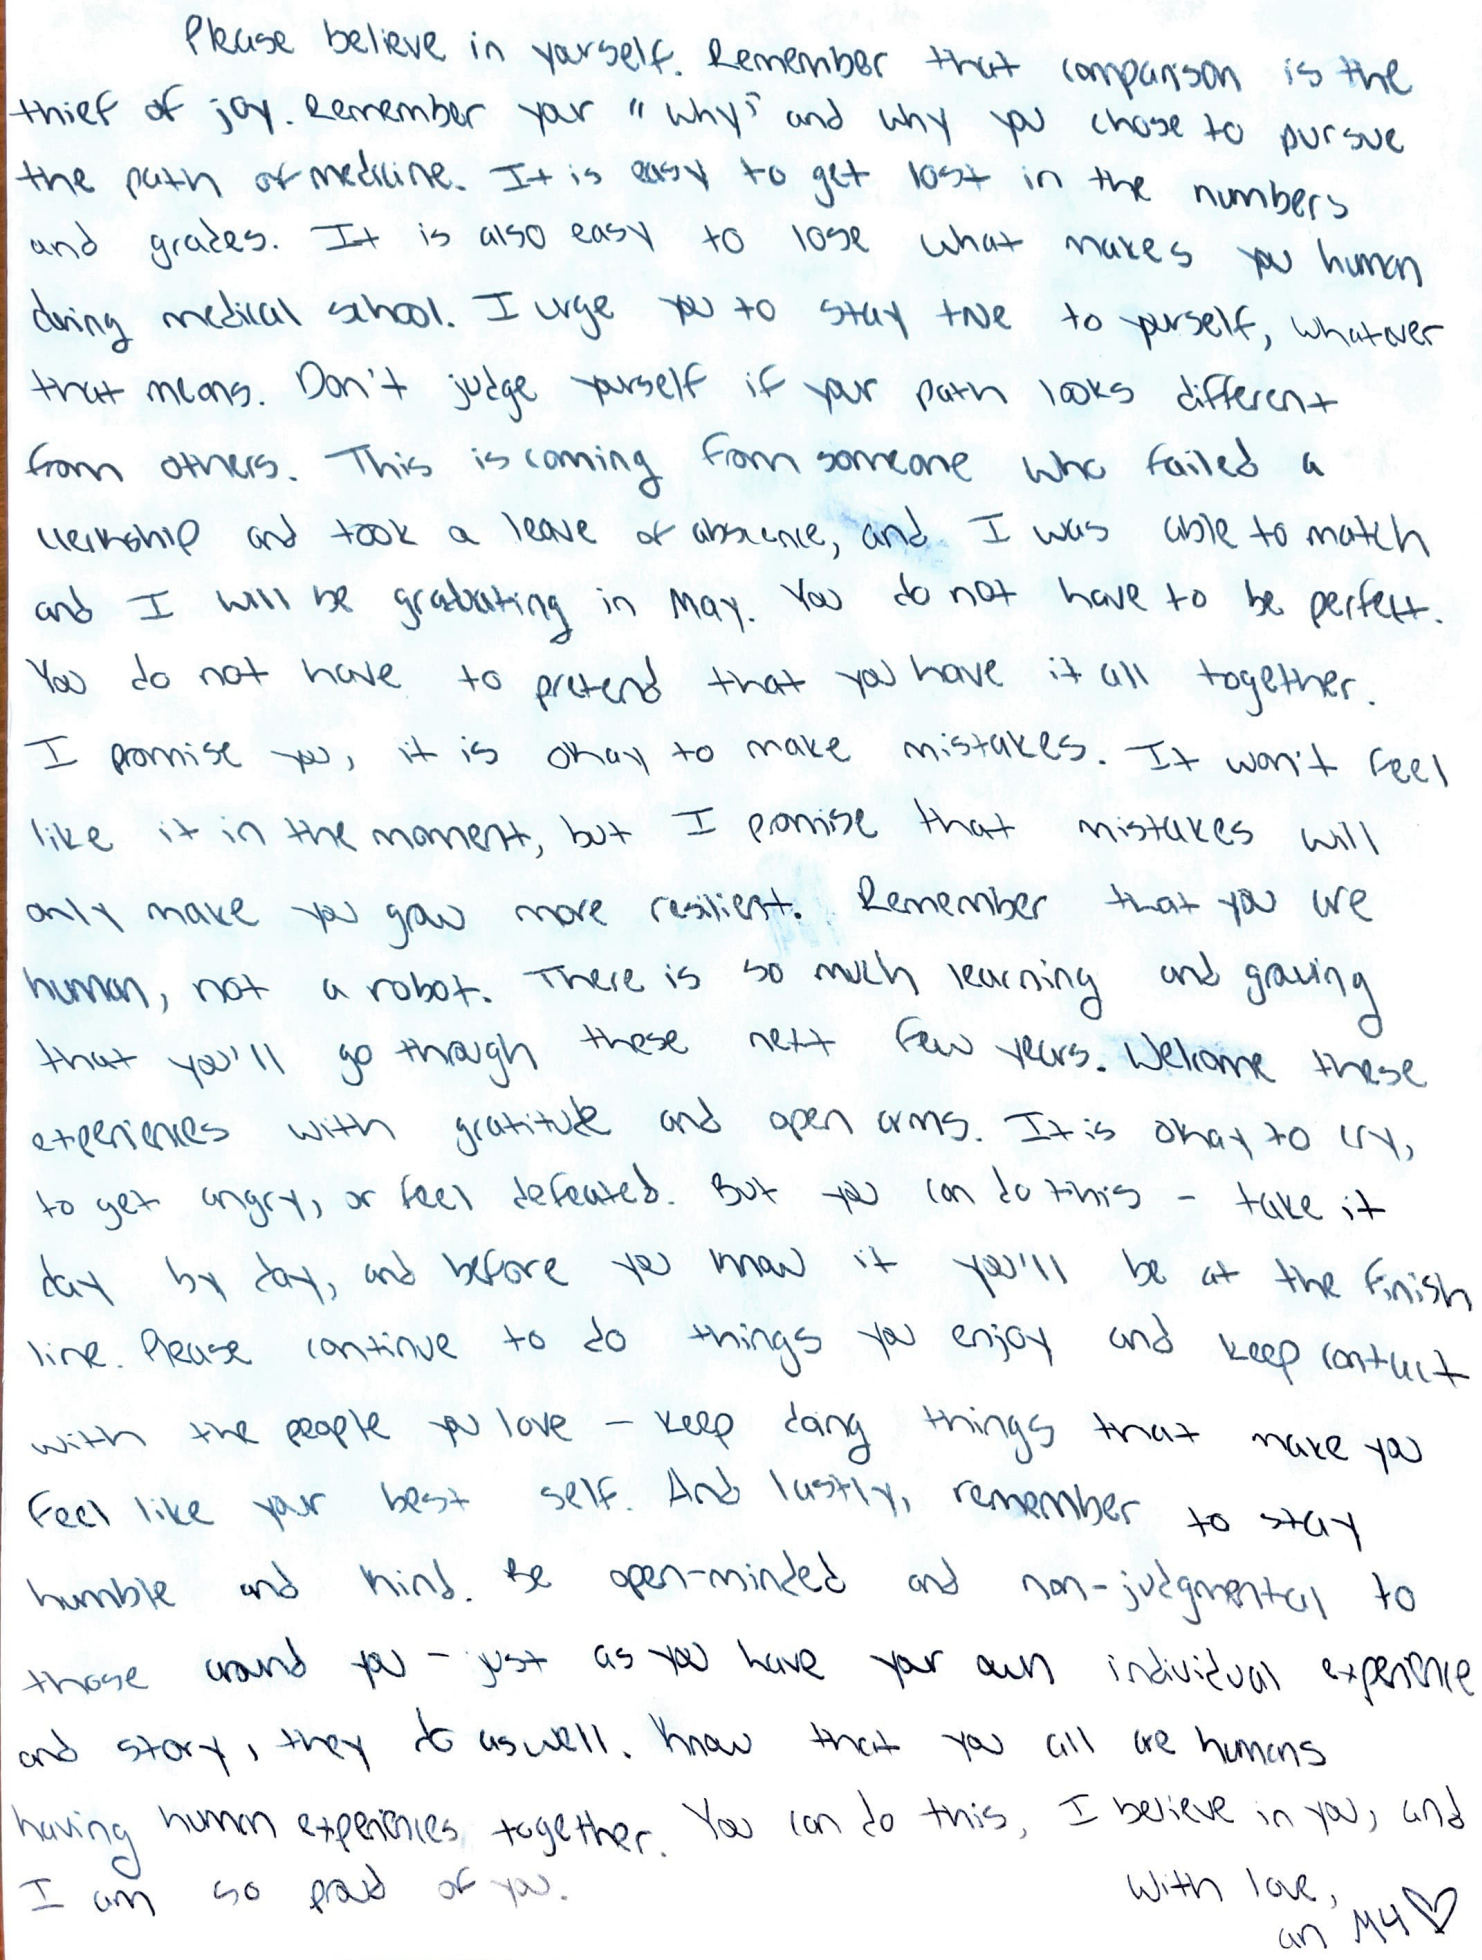 Please believe in yourself. Remember that comparison is the
thief of joy. Remember your "why" and why you chose to pursue
the path of medicine. It is easy to get lost in the numbers
and grades. It is also easy to lose what makes you human
during medical school. I urge you to stay true to yourself, whatever
that means. Don't judge yourself if your path looks different
from others. This is coming from someone who failed a
clerkship and took a leave of absence, and I was able to match
and I will be graduating in May. You do not have to be perfect.
You do not have to pretend that you have it all together.
I promise you, it is okay to make mistakes. It won't feel
like it in the moment, but I promise that mistakes will
only make you grow more resilient. Remember that you are
human, not a robot. There is so much learning and growing
that you'll go through these next few years. Welcome these
experiences with gratitude and open arms. It is okay to cry,
to get angry, or feel defeated. But you can do this - take it
day by day, and before you know it you'll be at the finish
line. Please continue to do things you enjoy and keep contact
with the people you love - keep doing things that make you
feel like your best self. And lastly, remember to stay
humble and kind. Be open-minded and non-judgmental to
those around you - just as you have your own individual experience
and story, they do as well. Know that you all are humans
having human experiences together. You can do this, I believe in you, and
I am so proud of you.
With love,
an M4 ♡